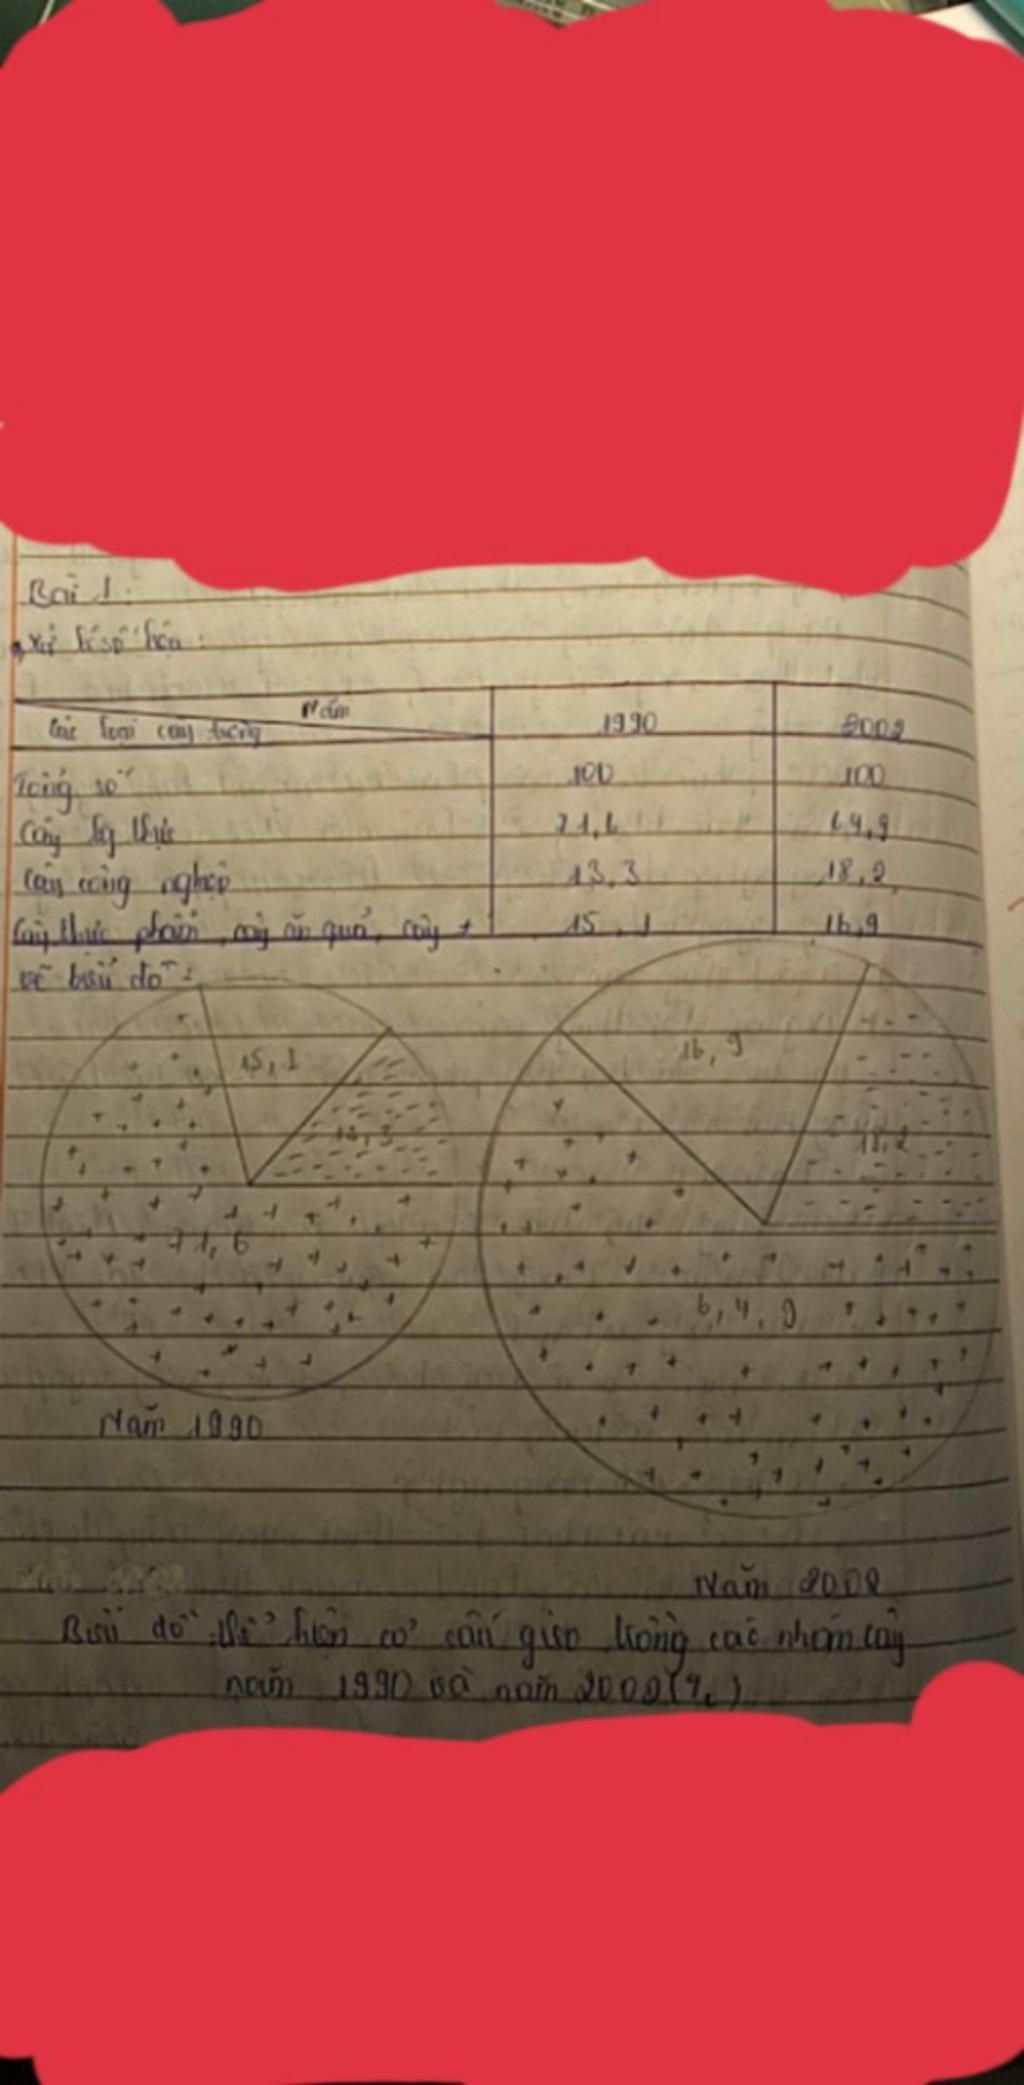 Bài 1:
Xử lí số liệu:
Năm
Các loại cây trồng
1990
2002
Tổng số 100 100
Cây lg thực 71,6 64,9
Cây công nghiệp 13,3 18,2
Cây thực phẩm, cây ăn quả, cây + 15,1 16,9
vẽ biểu đồ:
15,1
16,9
13,3
18,2
71,6
6,4,9
Năm 1990
Năm 2002
Biểu đồ thể hiện cơ cấu gieo trồng các nhóm cây
năm 1990 và năm 2002 (%)